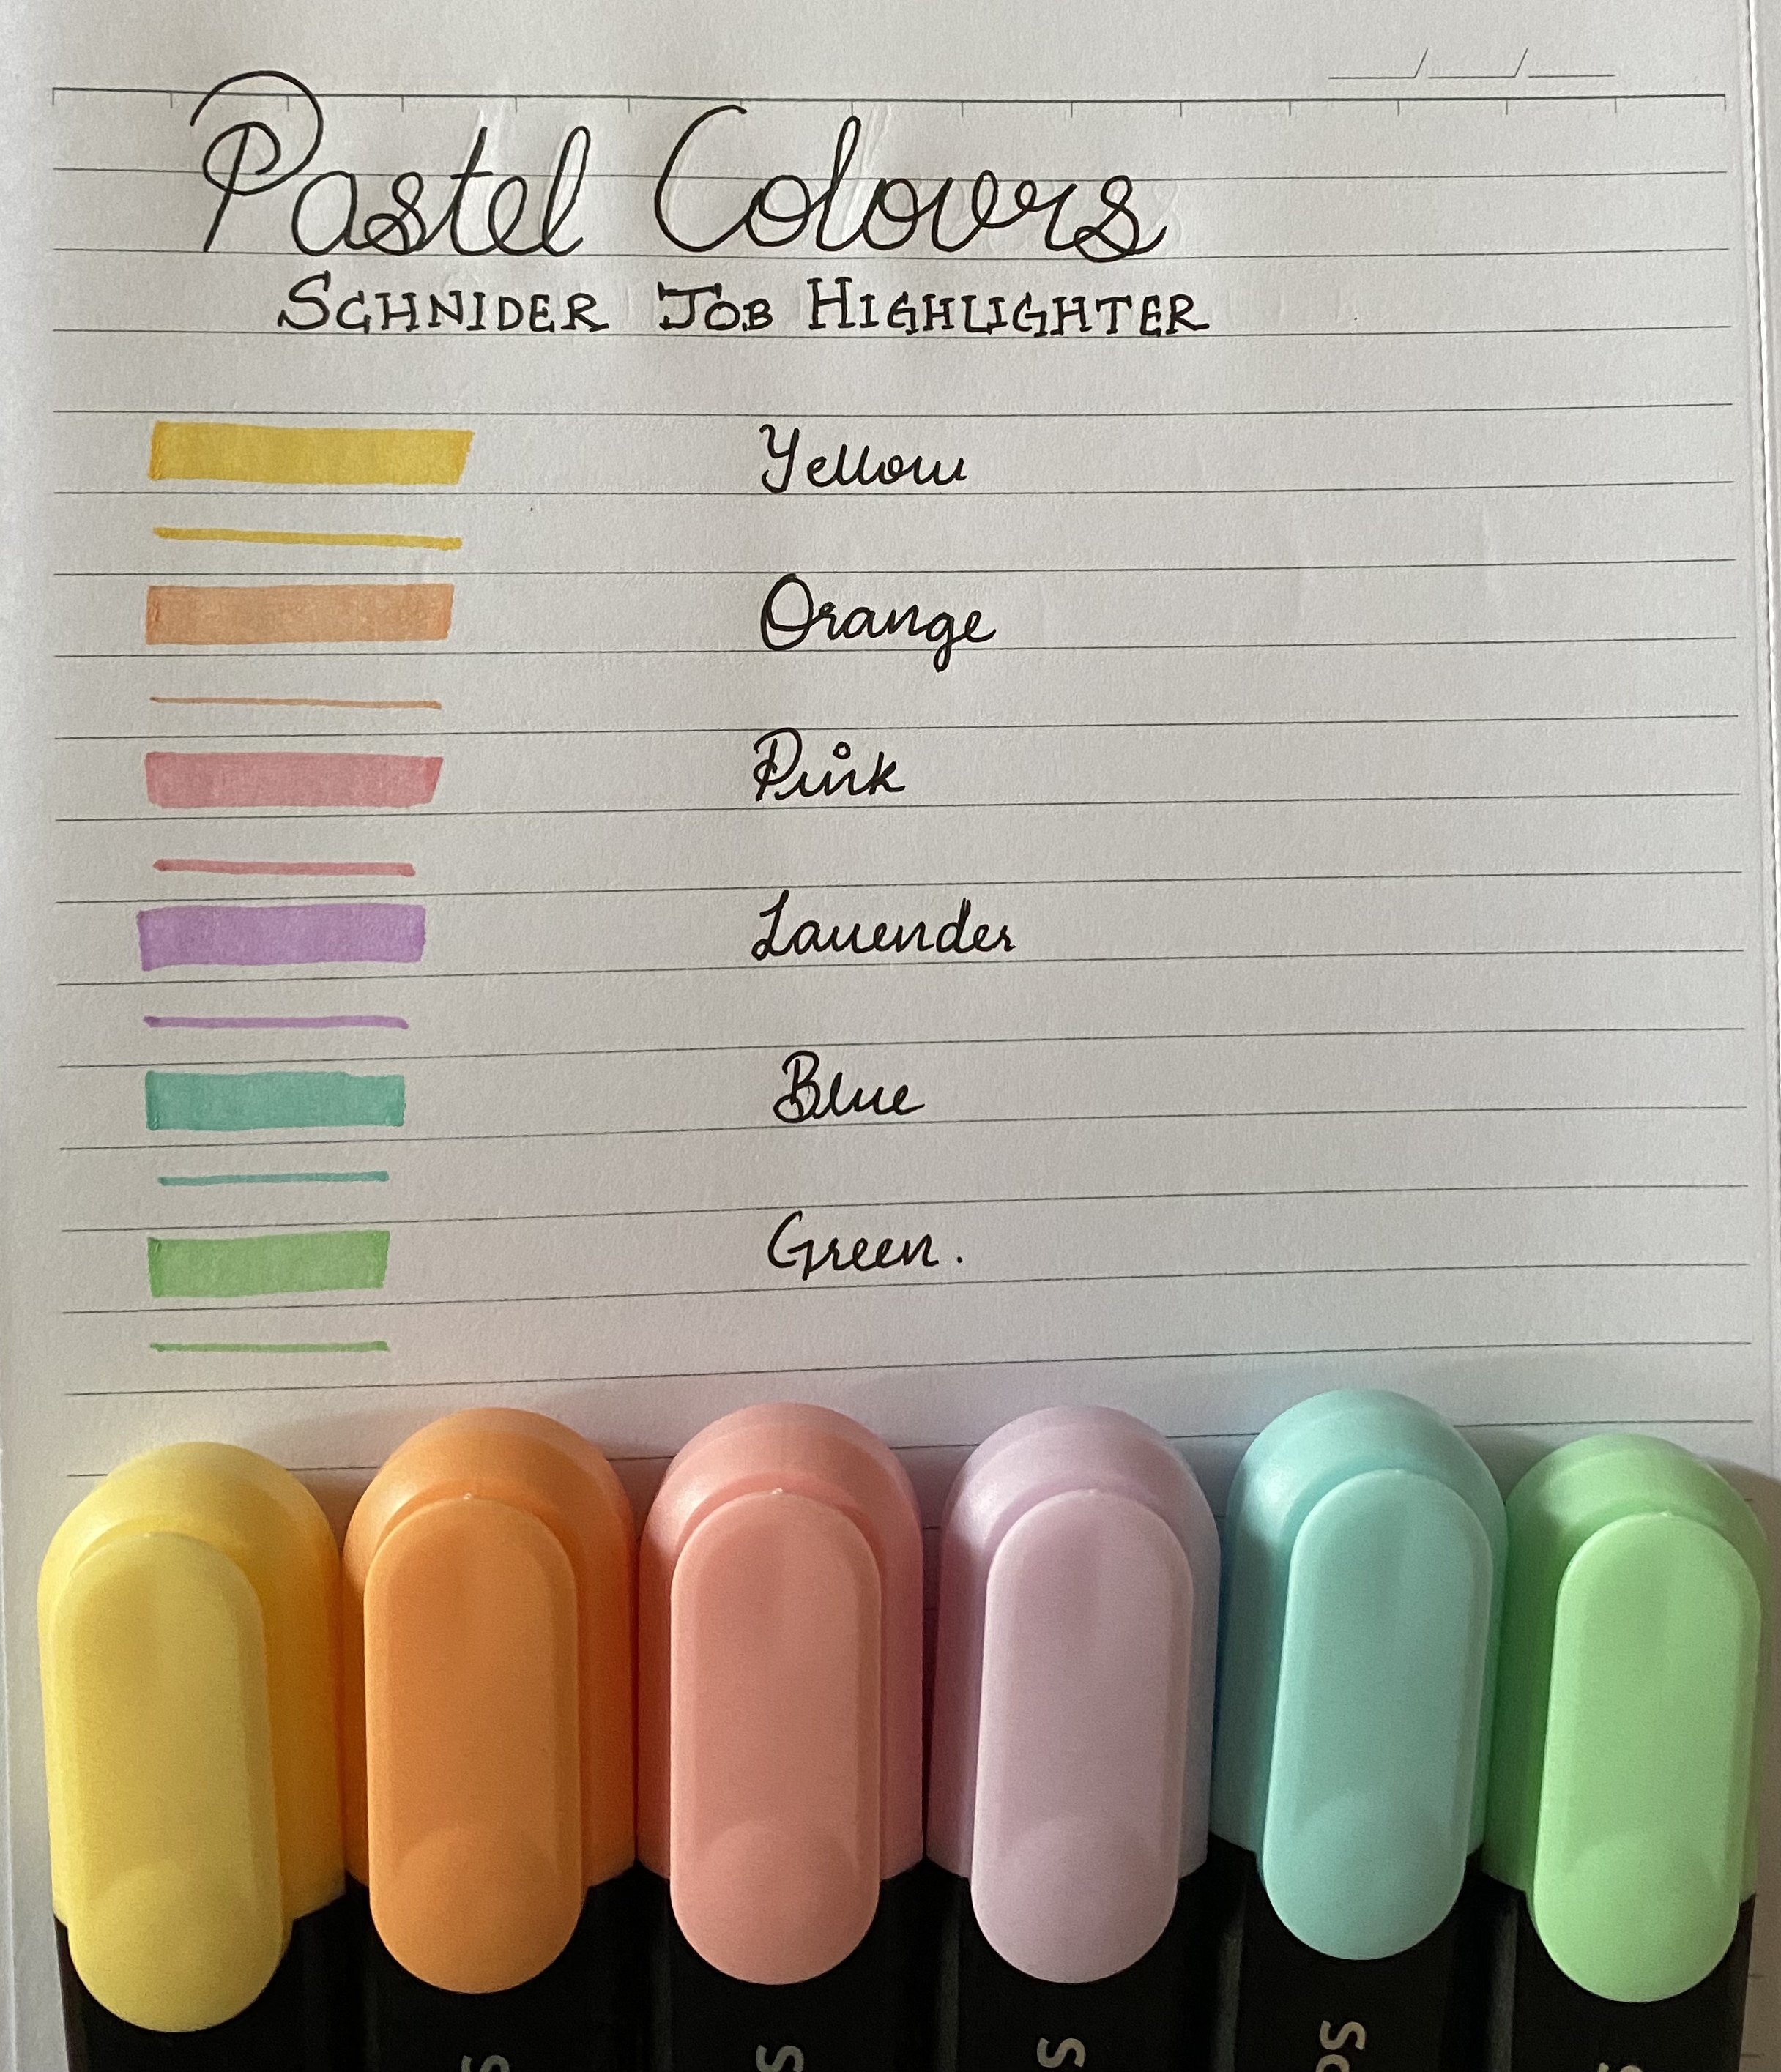 Pastel Colours
SCHNIDER JOB HIGHLIGHTER
Yellow
Orange
Pink
Lavender
Blue
Green.